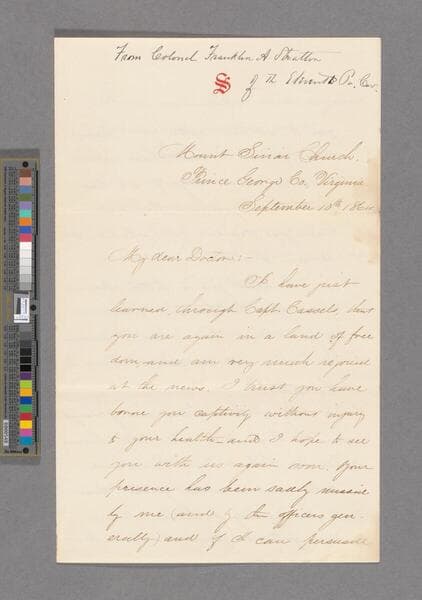 From Colonel Franklin A Stratton
S
of the Eleventh Pa. Cav.
Mount Sinai Church.
Prince George Co. Virginia
September 18th 1864
My dear Doctor:-
I have just
learned through Capt. Cassels, that
you are again in a land of free
dom and am very much rejoiced
at the news. I trust you have
borne your captivity without injury
to your health - and I hope to see
you with us again soon. Your
presence has been sadly missed
by me (and by the officers gen-
erally) and if I can persuade